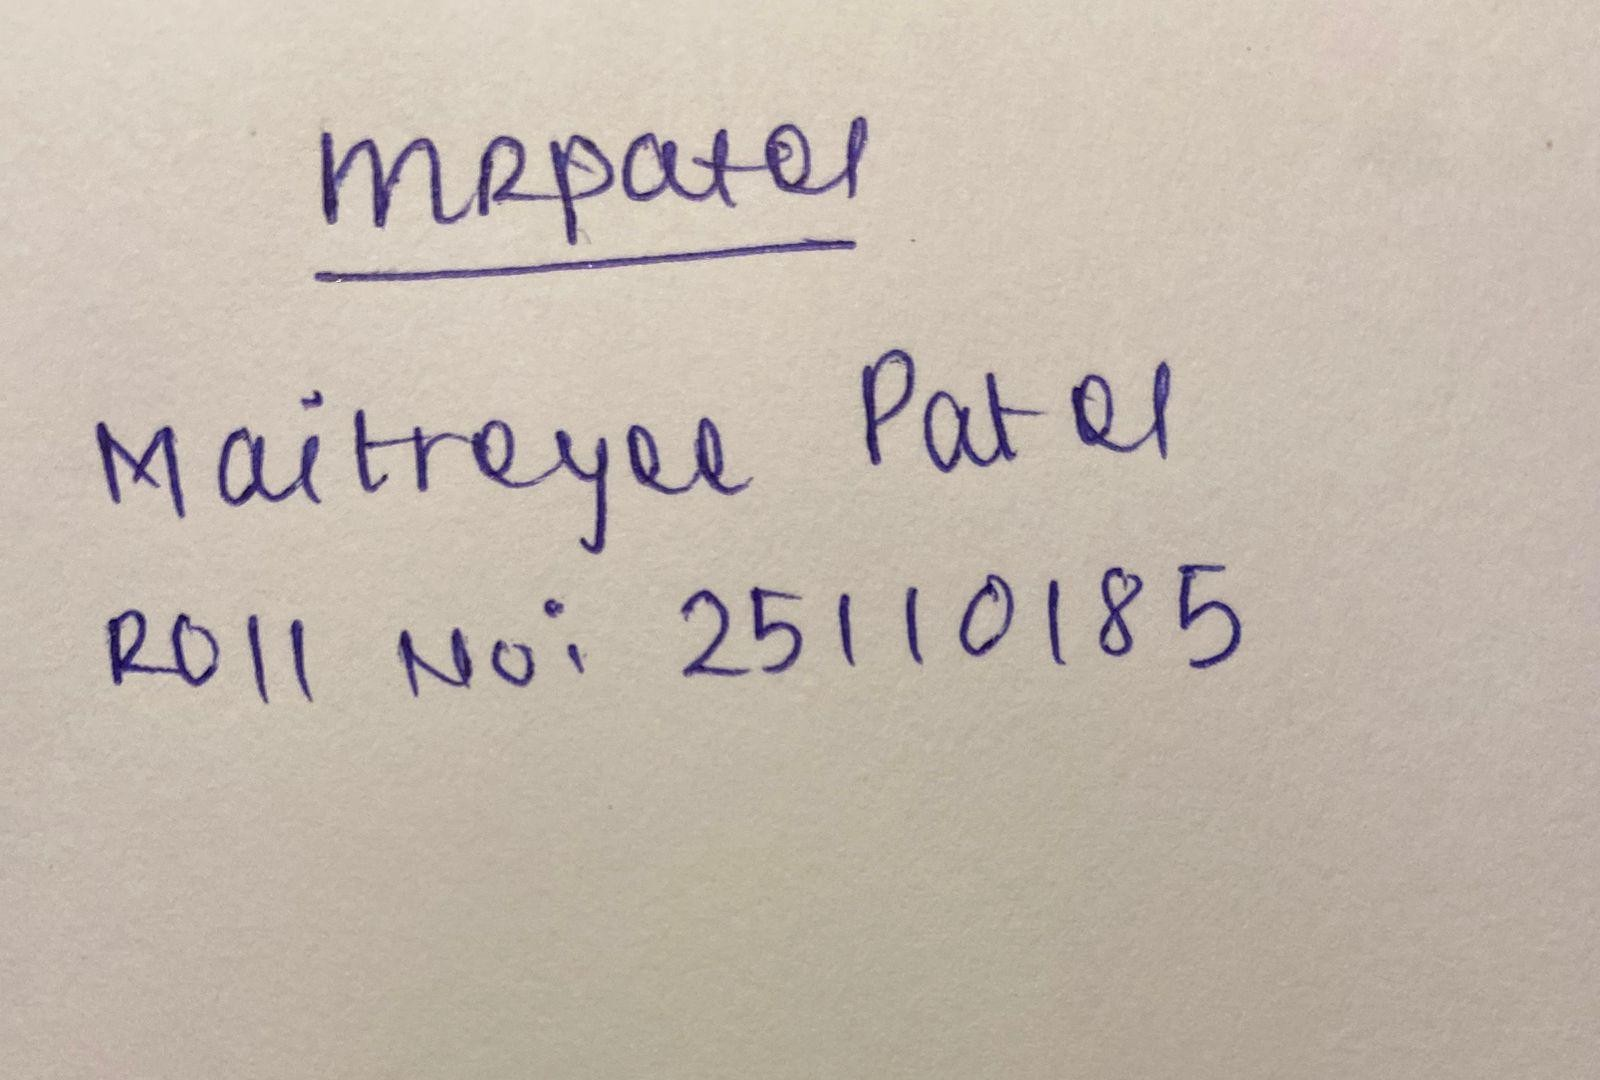 MRPatel
Maitreyee Patel
Roll No: 25110185